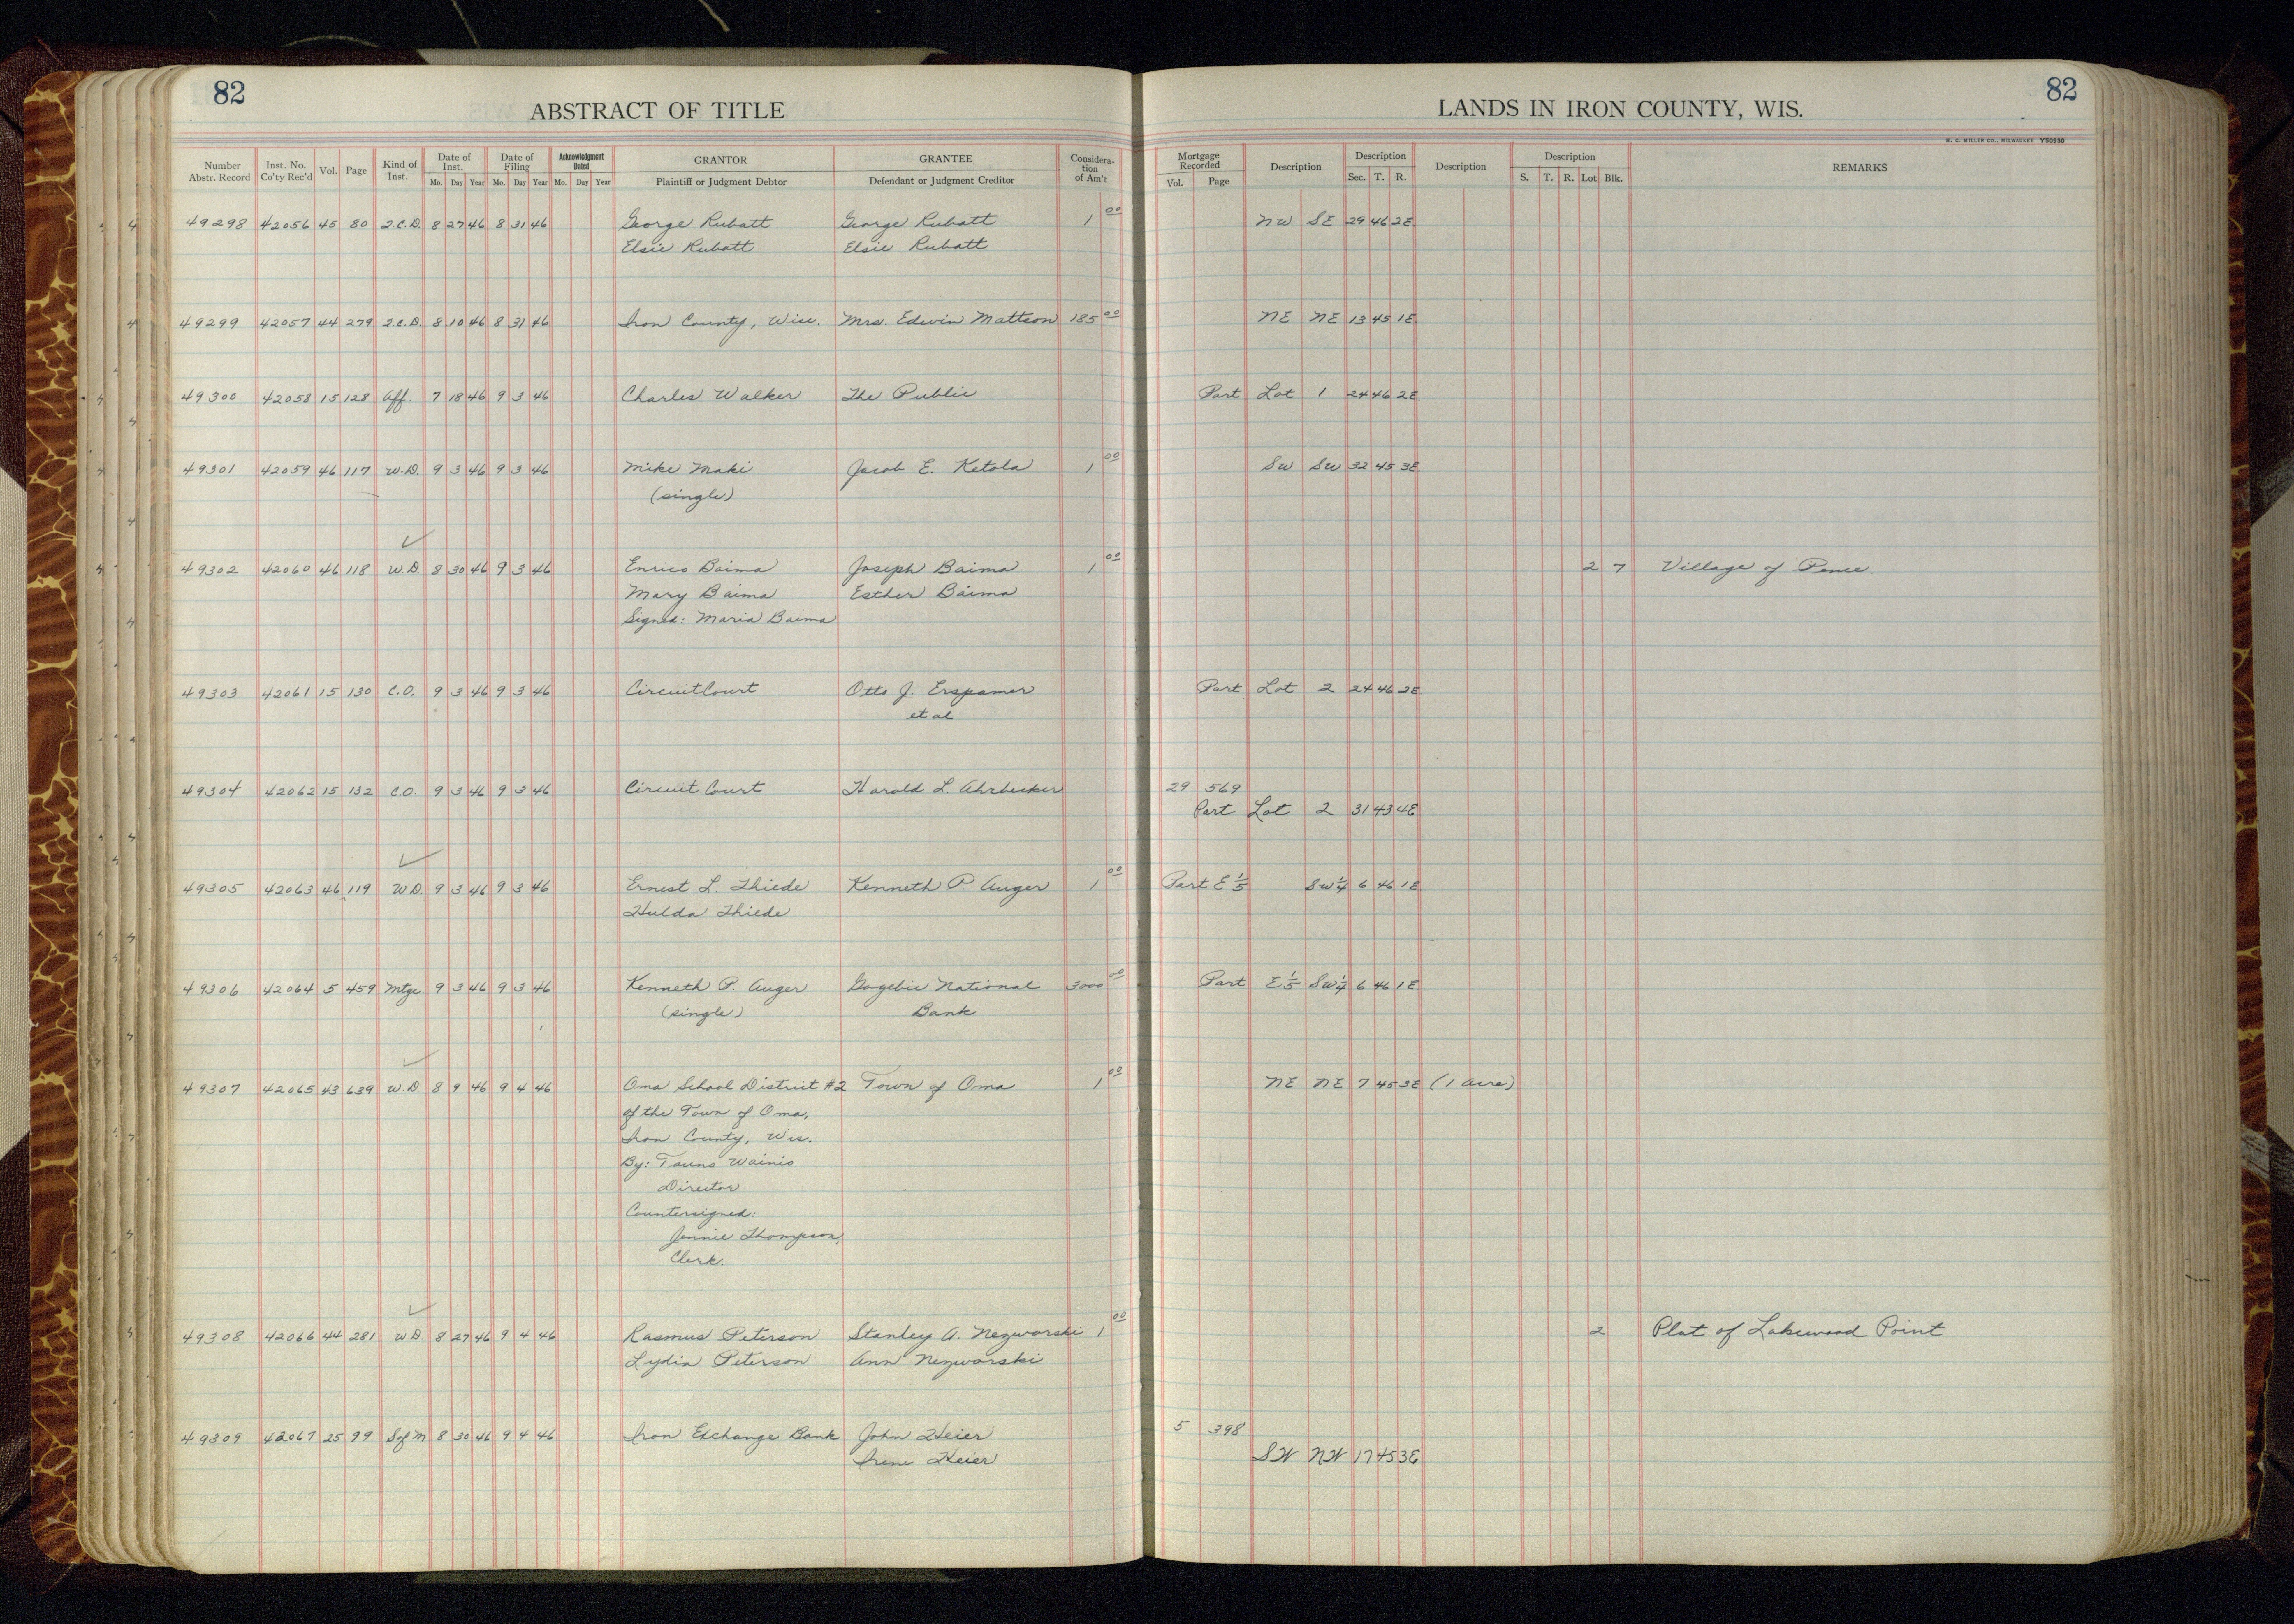 82
ABSTRACT OF TITLE
LANDS IN IRON COUNTY, WIS.
82
H. C. MILLER CO., MILWAUKEE Y50930
Number Abstr. Record | Inst. No. Co'ty Rec'd | Vol. | Page | Kind of Inst. | Date of Inst. Mo. Day Year | Date of Filing Mo. Day Year | Acknowledgment Dated Mo. Day Year | GRANTOR Plaintiff or Judgment Debtor | GRANTEE Defendant or Judgment Creditor | Consideration of Am't | Mortgage Recorded Vol. Page | Description | Description Sec. T. R. | Description | Description S. T. R. Lot Blk. | REMARKS
49298 42056 45 80 Q.C.D. 8 27 46 8 31 46 George Rubatt George Rubatt 1 00 NW SE 29 46 2E
Elsie Rubatt Elsie Rubatt
49299 42057 44 279 Q.C.D. 8 10 46 8 31 46 Iron County, Wisc. Mrs. Edwin Mattson 185 00 NE NE 13 45 1E
49300 42058 15 128 Aff. 7 18 46 9 3 46 Charles Walker The Public Part Lot 1 24 46 2E
49301 42059 46 117 W.D. 9 3 46 9 3 46 Mike Maki Jacob E. Ketola 1 00 SW SW 32 45 3E
(single)
49302 42060 46 118 W.D. 8 30 46 9 3 46 Enrico Baima Joseph Baima 1 00 2 7 Village of Pence.
Mary Baima Esther Baima
Signed: Maria Baima
49303 42061 15 130 C.O. 9 3 46 9 3 46 Circuit Court Otto J. Erspamer Part Lot 2 24 46 2E
et al
49304 42062 15 132 C.O. 9 3 46 9 3 46 Circuit Court Harold L. Ahrbecker 29 569
Part Lot 2 31 43 4E
49305 42063 46 119 W.D. 9 3 46 9 3 46 Ernest L. Thiede Kenneth P. Auger 1 00 Part E 1/5 SW 1/4 6 46 1E
Hulda Thiede
49306 42064 5 459 Mtge. 9 3 46 9 3 46 Kenneth P. Auger Gogebic National 3000 00 Part E 1/5 SW 1/4 6 46 1E
(single) Bank
49307 42065 43 639 W.D. 8 9 46 9 4 46 Oma School District #2 Town of Oma 1 00 NE NE 7 45 3E (1 acre)
of the Town of Oma,
Iron County, Wis.
By: Tauno Wainio
Director
Countersigned:
Jennie Thompson,
Clerk.
49308 42066 44 281 W.D. 8 27 46 9 4 46 Rasmus Peterson Stanley A. Nezworski 1 00 2 Plat of Lakewood Point
Lydia Peterson Ann Nezworski
49309 42067 25 99 S of M 8 30 46 9 4 46 Iron Exchange Bank John Heier 5 398
Irene Heier SW NW 17 45 3E